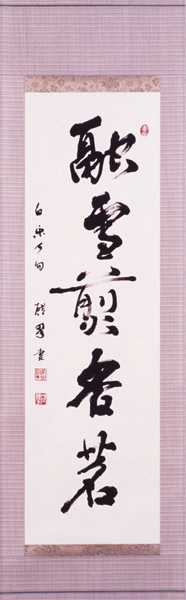 融雪煎香茗
白樂天句